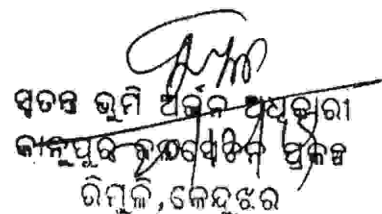 ସ୍ୱତନ୍ତ୍ର ଭୂମି ଅର୍ଜନ ଅଧିକାରୀ
କାନୁପୁର ଜଳସେଚନ ପ୍ରକଳ୍ପ
ରିମୁଳି, କେନ୍ଦୁଝର